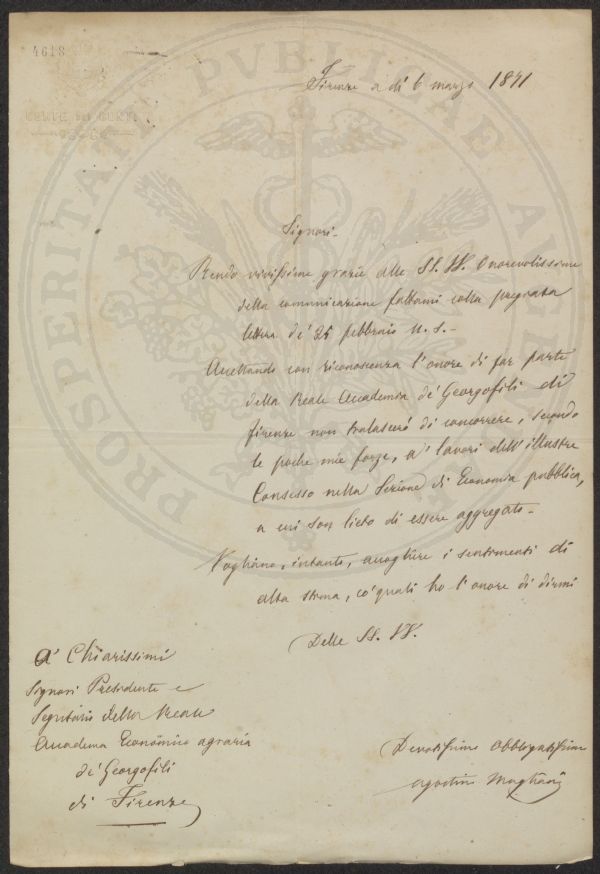 4618
CORTE DEI CONTI
PROSPERITATI PVBLICAE AVGENDAE
Firenze a dì 6 marzo 1871
Signori -
Rendo vivissime grazie alle SS. VV. Onorevolissime
della comunicazione fattami colla pregiata
lettera de' 25 febbraio u. s. -
Accettando con riconoscenza l'onore di far parte
della Reale Accademia de' Georgofili di
Firenze non tralascerò di concorrere, secondo
le poche mie forze, a' lavori dell'illustre
Consesso nella Sezione di Economia pubblica,
a cui son lieto di essere aggregato -
Vogliano, intanto, accogliere i sentimenti di
alta stima, co' quali ho l'onore di dirmi
Delle SS. VV.
A' Chiarissimi
Signori Presidente e
Segretario della Reale
Accademia Economico agraria
de' Georgofili
di Firenze
Devotissimo Obbligatissimo
Agostino Magliani